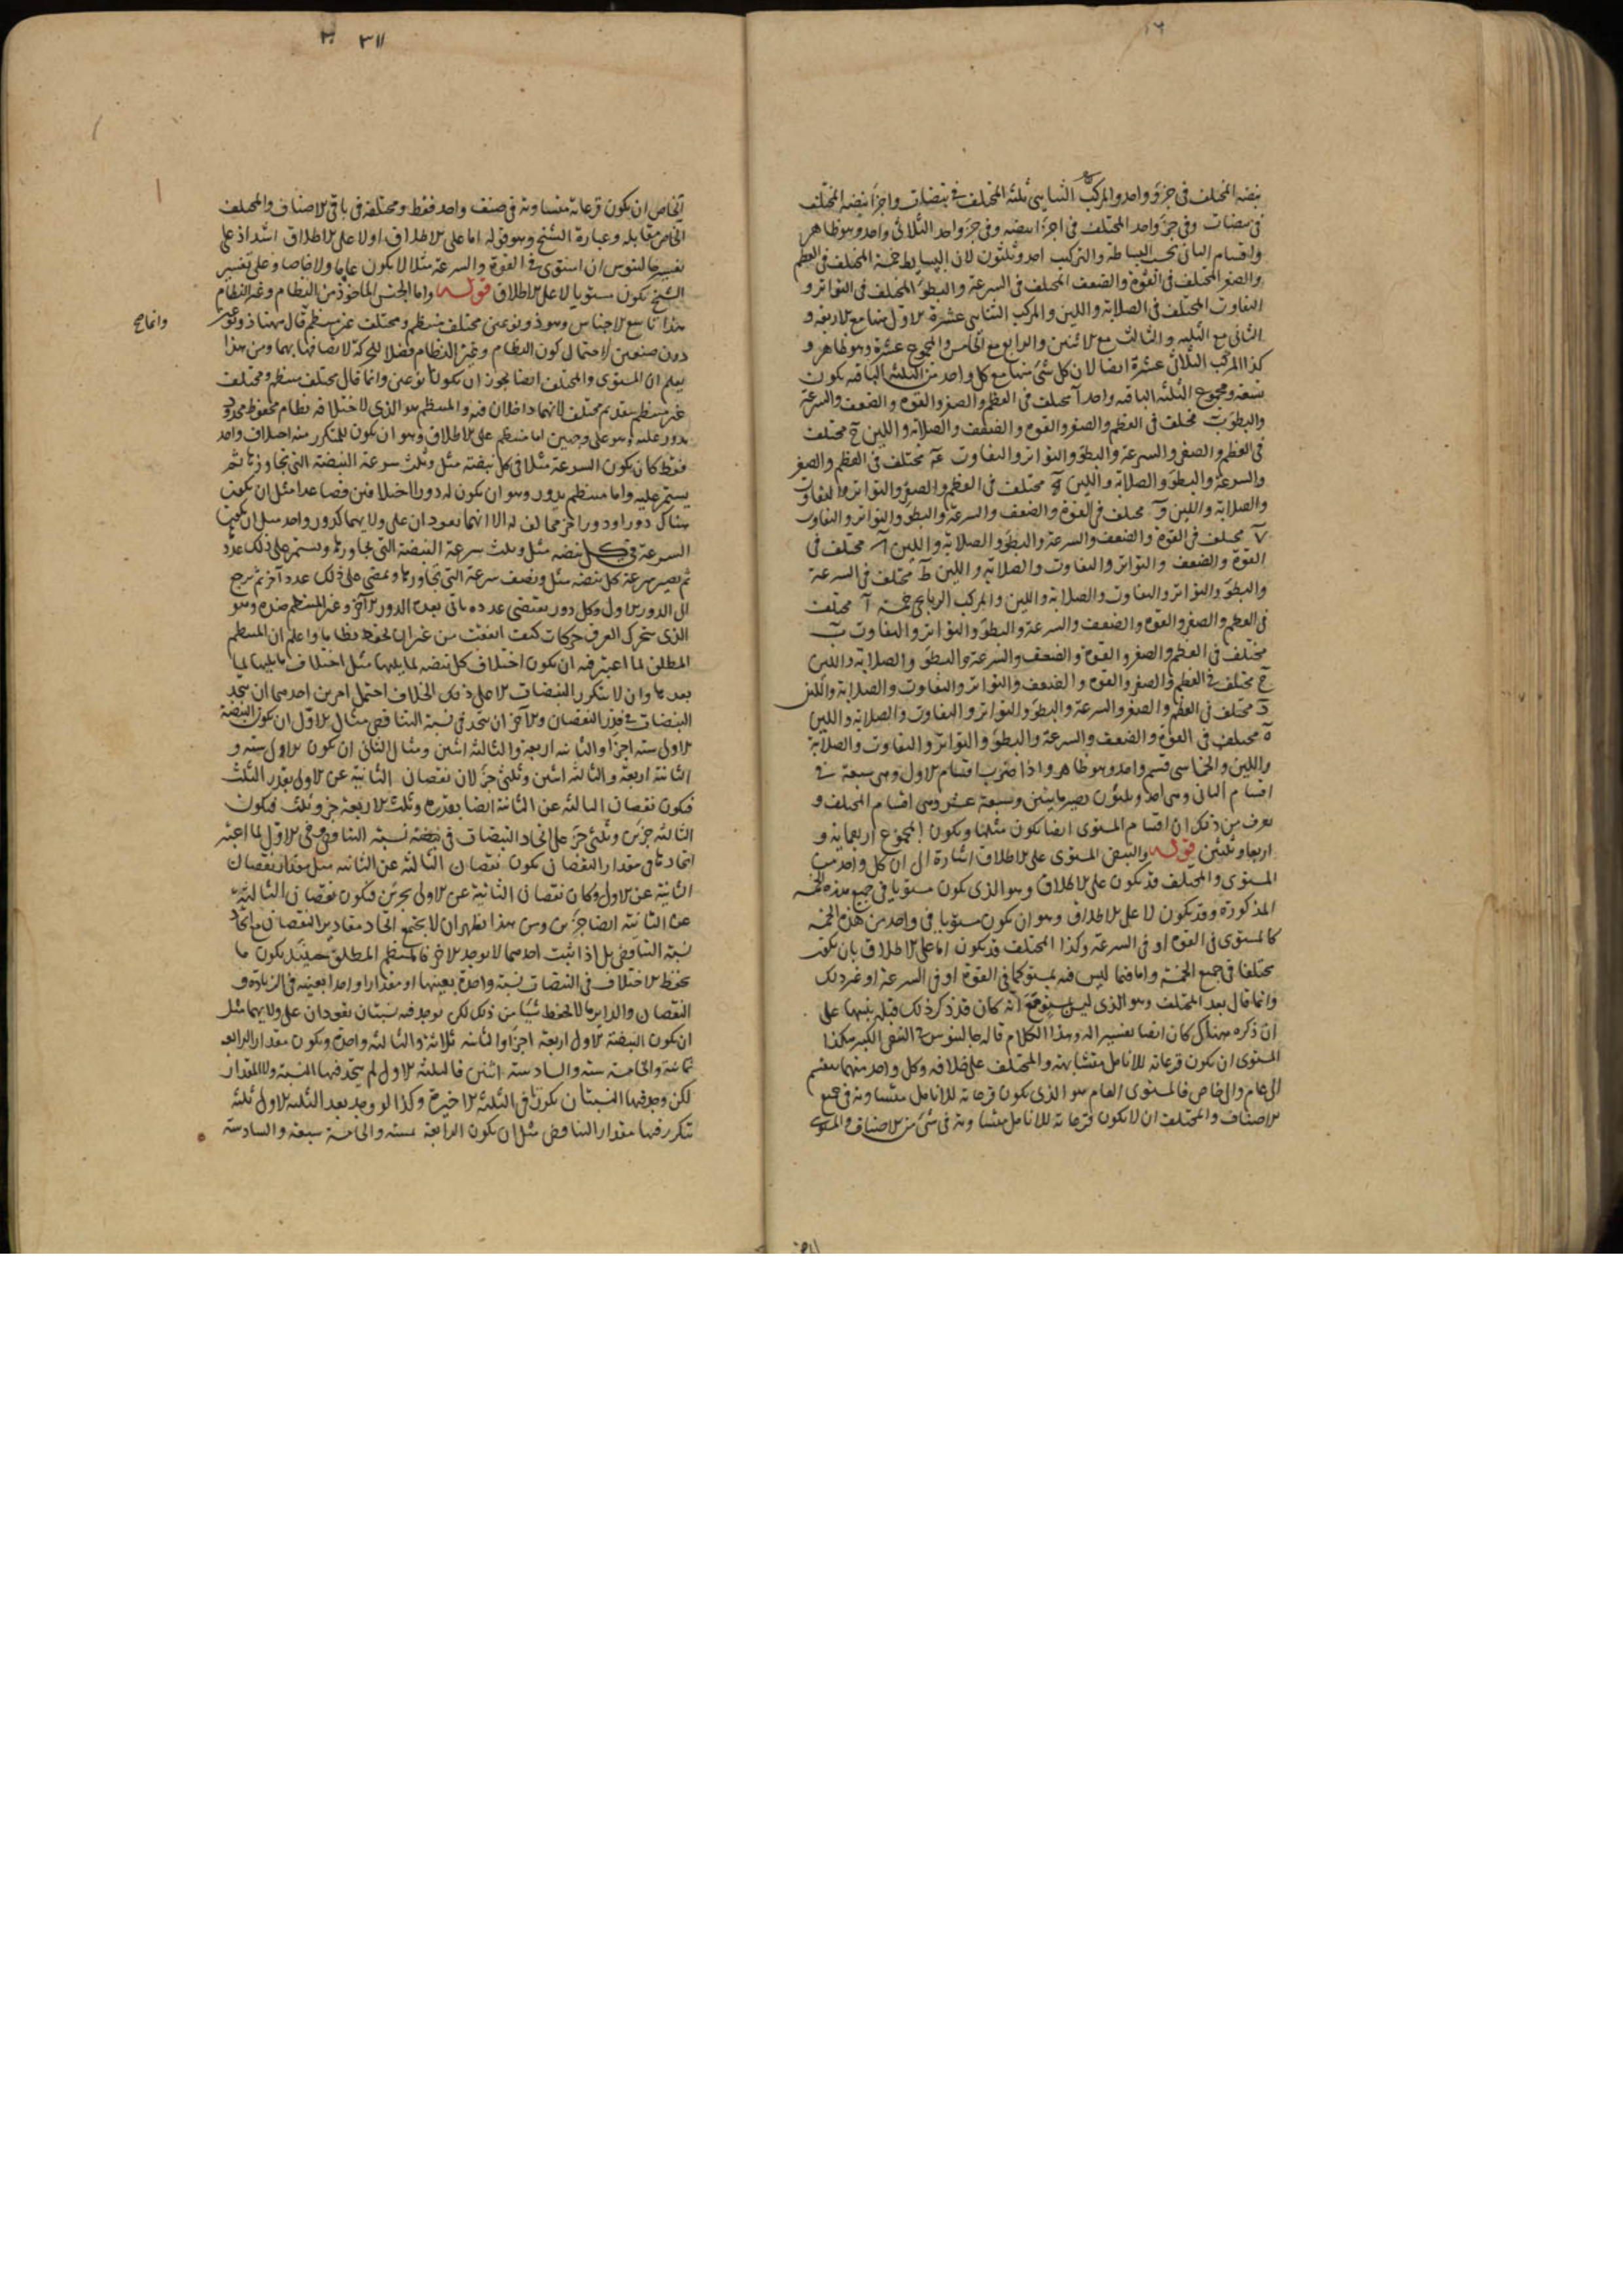 ١٦
نبضه المختلف في جزؤ واحد والمركب الثنايى ثلثة المختلف فى نبضات واجزأ نبضه المختلف
في نبضات وفي جزؤ واحد المختلف في اجزأ نبضه وفى جزؤ واحد الثلاثى واحد وهو ظاهر
واقسام الثانى بحسب البساطة والتركيب احد وثلثون لان البسايط خمسة المختلف فى العظم
والصغر المختلف فى القوة والضعف المختلف فى السرعة والبطؤ المختلف فى التواتر و
التفاوت المختلف فى الصلابة واللين والمركب الثنايى عشرة الاول منها مع الاربعة و
الثانى مع الثلثه والثالث مع الاثنين والرابع مع الخامس والمجموع عشرة وهو ظاهر و
كذا المركب الثلاثى عشرة ايضا لان كل شئ منها مع كل واحد من الثلثة الباقيه يكون
تسعه ومجموع الثلثه الباقيه واحد آ مختلف فى العظم والصغر والقوه والضعف والسرعة
والبطؤ ب مختلف فى العظم والصغر والقوه والضعف والصلابة واللين ج مختلف
فى العظم والصغر والسرعة والبطؤ والتواتر والتفاوت مختلف فى العظم والصغر
والسرعة والبطؤ والصلابة واللين ه مختلف فى العظم والصغر والتواتر والتفاوت
والصلابة واللين و مختلف فى القوة والضعف والسرعة والبطؤ والتواتر والتفاوت
مختلف فى القوة والضعف والسرعة والبطؤ والصلابة واللين مختلف فى
القوة والضعف والتواتر والتفاوت والصلابة واللين ط مختلف فى السرعة
والبطؤ والتواتر والتفاوت والصلابة واللين والمركب الرباعى خمسة آ مختلف
فى العظم والصغر والقوه والضعف والسرعة والبطؤ والتواتر والتفاوت ب
مختلف فى العظم والصغر والقوه والضعف والسرعة والبطؤ والصلابة واللين
ج مختلف فى العظم والصغر والقوه والضعف والتواتر والتفاوت والصلابة واللين
د مختلف فى العظم والصغر والسرعة والبطؤ والتواتر والتفاوت والصلابة واللين
ه مختلف فى القوة والضعف والسرعة والبطؤ والتواتر والتفاوت والصلابة
واللين والخماسى قسم واحد وهو ظاهر واذا ضرب اقسام الاول وهى سبعة فى
اقسام الثانى وهى احد وثلثون يصير مايتين وسبعة عشر وهى اقسام المختلف و
يعرف من ذلك ان اقسام المستوى ايضا يكون مثلها ويكون المجموع اربعماية و
اربعا وثلثين قوله والنبض المستوى على الاطلاق اشارة الى ان كل واحد من
المستوى والمختلف قد يكون على الاطلاق وهو الذى يكون مستويا فى جميع هذه الخمسة
المذكورة وقد يكون لا على الاطلاق وهو ان يكون مستويا فى واحد من هذه الخمسة
كالمستوى فى القوة او فى السرعة وكذا المختلف قد يكون اما على الاطلاق بان يكون
مختلفا فى جميع الخمسة واما فيما ليس فيه بمستو كما فى القوة او فى السرعة او غير ذلك
وانما قال بعد المختلف وهو الذى ليس بمستو مع انه كان قد ذكر ذلك قبله تنبيها على
ان ذكره هناك كان ايضا تفسيرا له وهذا الكلام قاله جالينوس فى النبض الكبير هكذا
المستوى ان يكون قرعاته للانامل متشابهة والمختلف على خلافه وكل واحد منهما ينقسم
الى عام والى خاص فالمستوى العام هو الذى يكون قرعاته للانامل متساوية فى جميع
الاصناف والمختلف ان لا يكون قرعاته للانامل متساوية فى شئ من الاصناف والمستوى
٣١١
الخاص ان يكون قرعاته متساوية فى صنف واحد فقط ومختلفة فى باقى الاصناف والمختلف
الخاص مقابله وعبارة الشيخ وهو قوله اما على الاطلاق او لا على الاطلاق اشد اذ على
تفسير جالينوس ان استوى فى القوة والسرعة مثلا لا يكون عاما ولا خاصا وعلى تفسير
الشيخ يكون مستويا لا على الاطلاق قوله واما الجنس الماخوذ من النظام وغير النظام
هذا تاسع الاجناس وهو ذو نوعين مختلف منتظم ومختلف غير منتظم قال ههنا ذو نوعين
وانما صح
دون صنفين لاحتمال كون النظام وغير النظام فصلا للحركة لاتصافها بهما ومن هذا
يعلم ان المستوى والمختلف ايضا يجوز ان يكونا نوعين وانما قال مختلف منتظم ومختلف
غير منتظم بتقديم مختلف لانهما داخلان فيه والمنتظم هو الذى لاختلافه نظام محفوظ محدود
يدور عليه وهو على وجهين اما منتظم على الاطلاق وهو ان يكون المتكرر منه اختلاف واحد
فقط كان يكون السرعة مثلا فى كل نبضة مثل وثلث سرعة النبضة التى تجاوزها ثم
يستمر عليه واما منتظم بدور وهو ان يكون له دورا اختلافين فصاعدا مثل ان يكون
هناك دورا ودورا آخر مخالف له الا انهما يعودان على ولائهما كدور واحد مثل ان يكون
السرعة فى كل نبضه مثل وثلث سرعة النبضة التى تجاورها ويستمر على ذلك عددا
ثم يصير سرعة كل نبضه مثل ونصف سرعة التى تجاورها ويمضى على ذلك عدد آخر ثم يرجع
الى الدور الاول وكل دور بمقتضى عدده ياتى بعده الدور الآخر وغير المنتظم ضده وهو
الذى يتحرك العرق حركات كيف اتفقت من غير ان يحفظ نظاما واعلم ان المنتظم
المطلق لما اعتبر فيه ان يكون اختلاف كل نبضه لما يليها مثل اختلاف ما يليها لما
بعدها وان لا يتكرر النبضات الا على ذلك الخلاف احتمل امرين احدهما ان يتحد
النبضات فى قدر النقصان والآخر ان يتحد فى نسبة التناقص مثال الاول ان يكون النبضة
الاولى سته اجزأ والثانيه اربعة والثالثه اثنين ومثال الثانى ان يكون الاولى سته و
الثانية اربعة والثالثه اثنين وثلثى جزؤ لان نقصان الثانية عن الاولى بقدر الثلث
فيكون نقصان الثالثه عن الثانية ايضا بقدره وثلث الاربعة جزؤ وثلث فيكون
الثالثه جزئين وثلثى جزؤ على اتحاد النبضات فى نسبة التناقص وفى الاول لما اعتبر
اتحادها فى مقدار النقصان يكون نقصان الثالثه عن الثانيه مثل مقدار نقصان
الثانية عن الاولى وكان نقصان الثانية عن الاولى بجزئين فيكون نقصان الثالثة
عن الثانية ايضا جزئين ومن هذا يظهر ان لا يجتمع اتحاد مقادير النقصان مع اتحاد
نسبة التناقص بل اذا ثبت احدهما لا يوجد الاخر فالمنتظم المطلق حينئذ يكون ما
يحفظ الاختلاف فى النبضات نسبة واحدة بعينها او مقدارا واحدا بعينه فى الزيادة و
النقصان والداير ما لا يحفظ شيئا من ذلك لكن يوجد فيه نسبتان يعودان على ولائهما مثل
ان يكون النبضة الاولى اربعة اجزأ والثانيه ثلاثة والثالثه واحدة ويكون مقدار الرابعه
ثمانية والخامسة ستة والسادسة اثنين فالثلثه الاول لم يتحد فيها النسبة ولا المقدار
لكن وجد فيها النسبتان يكررتا فى الثلثة الاخيرة وكذا لو وجد بعد الثلثه الاول ثلثة
تتكرر فيها مقدار التناقص مثل ان يكون الرابعة ستة والخامسة سبعة والسادسة